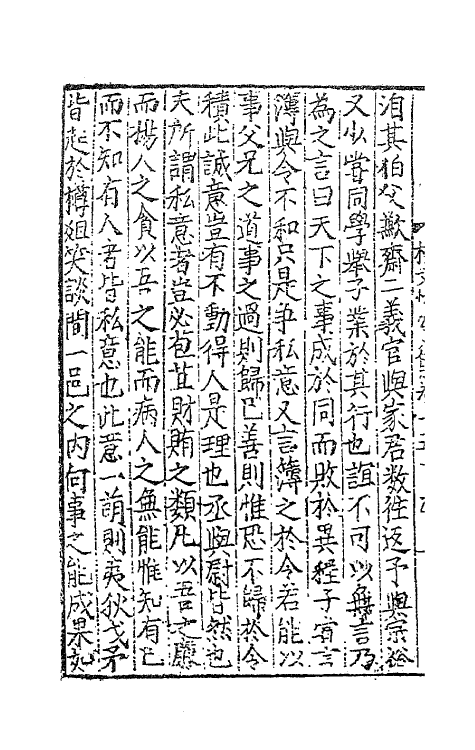 洎其伯父歉齋二義官與家君数往返予與宗裕
又少嘗同學舉子業於其行也誼不可以無言乃
為之言曰天下之事成於同而敗於異程子有言
簿與令不和只是争私意又言簿之於令若能以
事父兄之道事之過則歸已善則惟恐不歸於令
積此誠意豈有不動得人是理也丞與尉皆然也
夫所謂私意者豈必苞苴財賄之類凡以吾之廉
而揚人之貪以吾之能而病人之無能惟知有已
而不知有人者皆私意也此意一萌則夷狄戈矛
皆起於樽俎笑談間一邑之内何事之能成果如